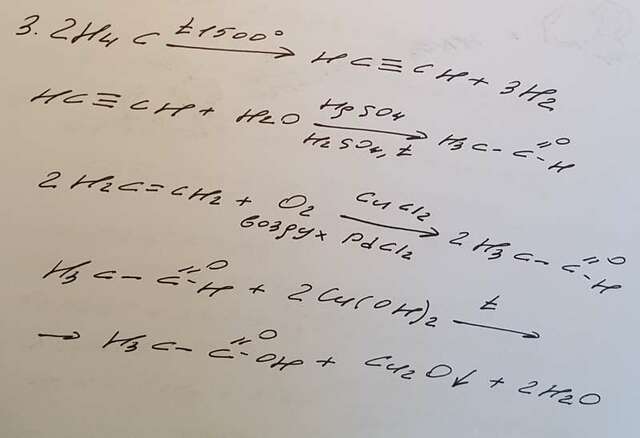 3. 2H4C t1500° → HC≡CH + 3H2
HC≡CH + H2O HgSO4 H2SO4, t → H3C-C=O-H
2H2C=CH2 + O2 воздух CuCl2 PdCl2 → 2H3C-C=O-H
H3C-C=O-H + 2Cu(OH)2 t →
→ H3C-C=O-OH + Cu2O↓ + 2H2O